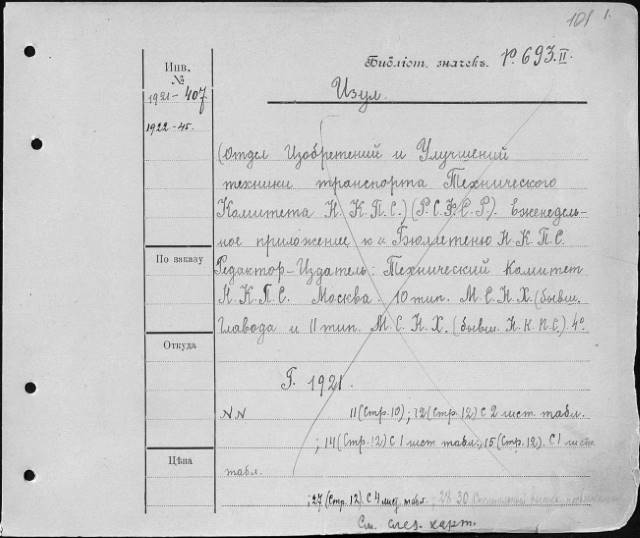 101 1.
Библіот. значекъ. Ро693.II.
Инв.
№
1921-407
1922-45.
Изул.
(Отдел Изобретений и Улучшений
техники транспорта Технического
Комитета Н. К. П. С.) (Р. С. Ф. С. Р.). Еженедель-
ное приложение к „Бюллетеню Н. К. П. С.
По заказу
Редактор-Издатель: Технический Комитет
Н. К. П. С. Москва 10 тип. М. С. Н. Х. (бывш.
Главода и 11 тип. М. С. Н. Х. (бывш. Н. К. П. С.) 4º
Откуда
Г. 1921.
NN 11 (Стр. 10); 12 (Стр. 12) с 2 лист. табл.
; 14 (Стр. 12) с 1 лист табл.; 15 (Стр. 12). с 1 листа
Цѣна
табл.
; 27 (Стр. 12). с 4 лист. табл. ; 28 30
См. след. карт.